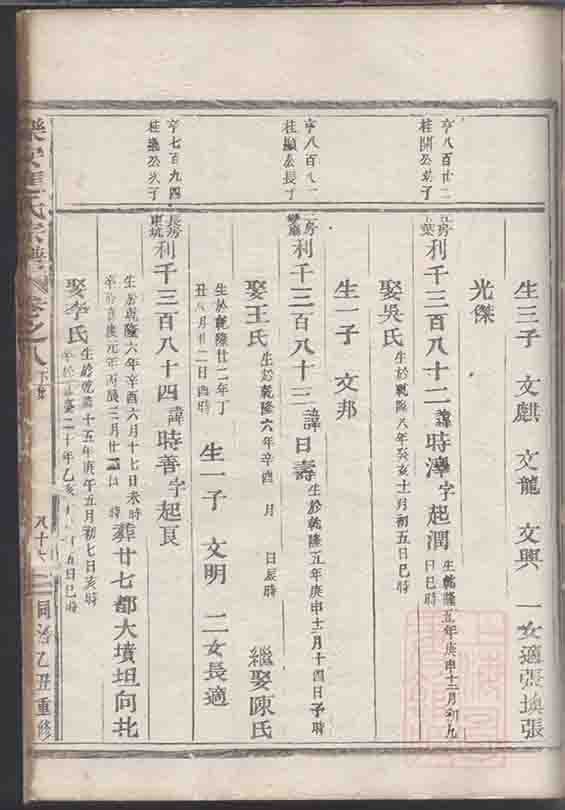 生三子 文麒 文龍 文興 一女適張煥張
光傑
亨八百廿二
桂開公
利千三百八十二 諱時澤字起潤 生乾隆五年庚申十二月初九日巳時
娶吳氏 生於乾隆八年癸亥十一月初五日巳時
生一子 文邦
亨八百八一
桂顯公長子
利千三百八十三 諱日壽 生於乾隆五年庚申十二月十四日子時
娶王氏 生於乾隆六年辛酉 月 日辰時 繼娶陳氏
生於乾隆廿二年丁丑 月廿二日酉時 生一子 文明 二女長適
亨七百九四
桂 公次子
長房
東坑
利千三百八十四 諱時善字起良
生於乾隆六年辛酉六月十七日未時
慶元年丙辰三月廿 日 時 葬廿七都大墳坦向北
娶李氏 生於乾隆十五年庚午五月初七日亥時
二十年乙亥 月 五日巳時
氏宗譜 卷之八
八十六
同治乙丑重修